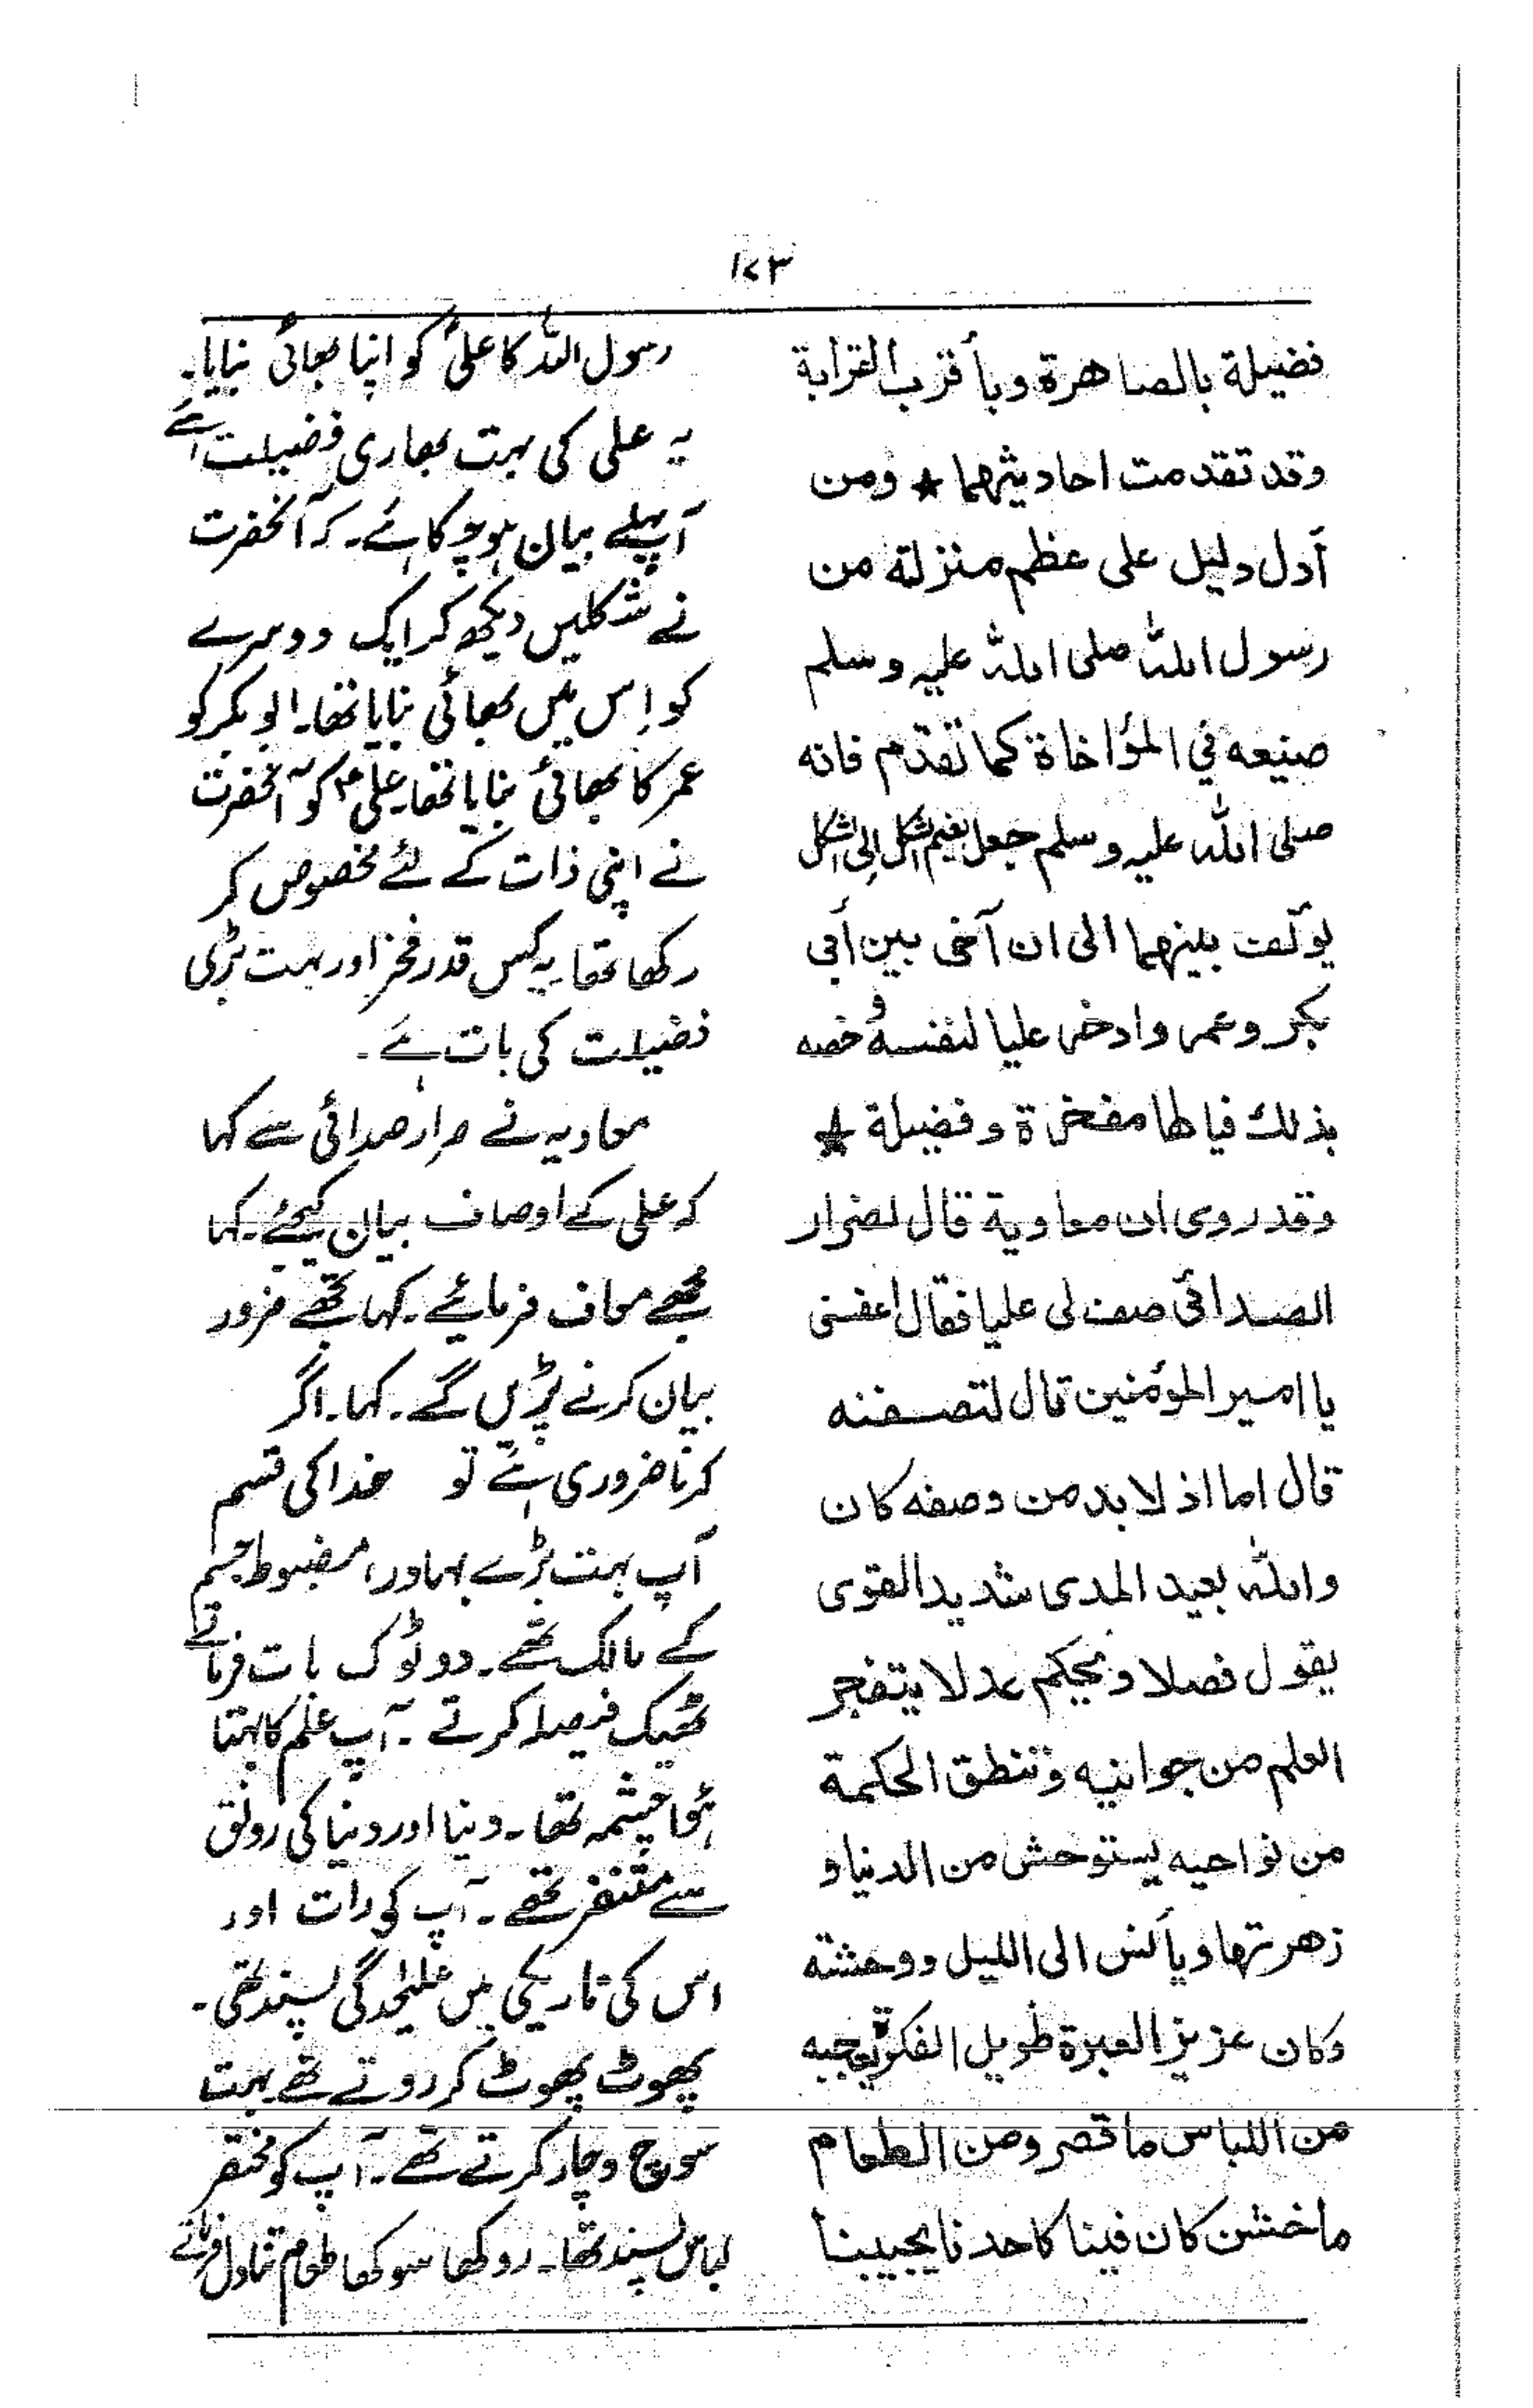 ۱۷۳
فضيلة بالصاهرة وبأقرب القرابة
وقد تقدمت احاديثهما ★ ومن
أدل دليل على عظم منزلة من
رسول الله صلى الله عليه وسلم
صنيعه في المؤاخاة كما تقدم فانه
صلى الله عليه وسلم جعل يضم الشكل إلى الشكل
يولف بينهما الى ان آخى بين أبي
بكر وعمر وادخر عليا لنفسه و خصه
بذلك فيا لها مفخرة وفضيلة ★
وقد روى ان معاوية قال لضرار
الصدائى صف لى عليا فقال اعفنى
يا امير المؤمنين قال لتصفنه
قال اما اذ لا بد من وصفه كان
والله بعيد المدى شديد القوى
يقول فصلا ويحكم عدلا يتفجر
العلم من جوانبه وتنطق الحكمة
من نواحيه يستوحش من الدنيا و
زهرتها ويأنس الى الليل ووحشته
وكان عزيز العبرة طويل الفكرة يعجبه
من اللباس ما قصر ومن الطعام
ما خشن كان فينا كاحدنا يجيبنا
رسول اللہ کا علیؑ کو اپنا بھائی بنایا۔
یہ علی کی بہت بھاری فضیلت ہے
آپہلے بیان ہو چوکا ہے۔ کہ آنحضرت
نے شکلیں دیکھ کر ایک دوسرے
کو اِس میں بھائی بنایا تھا۔ ابو بکر کو
عمر کا بھائی بنایا تھا۔ علیؑ کو آنحضرت
نے اپنی ذات کے لئے مخصوص کر
رکھا تھا یہ کس قدر فخر اور بہت بڑی
فضیلت کی بات ہے۔
معاویہ نے ضرار صدائی سے کہا
کہ علی کے اوصاف بیان کیجئے۔ کہا
مجھے معاف فرمائیے۔ کہا تجھے ضرور
بیان کرنے پڑیں گے۔ کہا۔ اگر
کرنا ضروری ہے تو خدا کی قسم
آپ بہت بڑے بہادر، مضبوط جسم
کے مالک تھے۔ دو ٹوک بات فرماتے
ٹھیک فیصلہ کرتے۔ آپ علم کا بہتا
ہوا چشمہ تھا۔ دنیا اور دنیا کی رونق
سے متنفر تھے۔ آپ کی رات اور
اس کی تاریکی میں علیٰحدگی پسند تھی۔
پھوٹ پھوٹ کر روتے تھے بہت
سوچ وچار کرتے تھے۔ آپ کو مختصر
لباس پسند تھا۔ روکھا سوکھا طعام تناول فرماتے